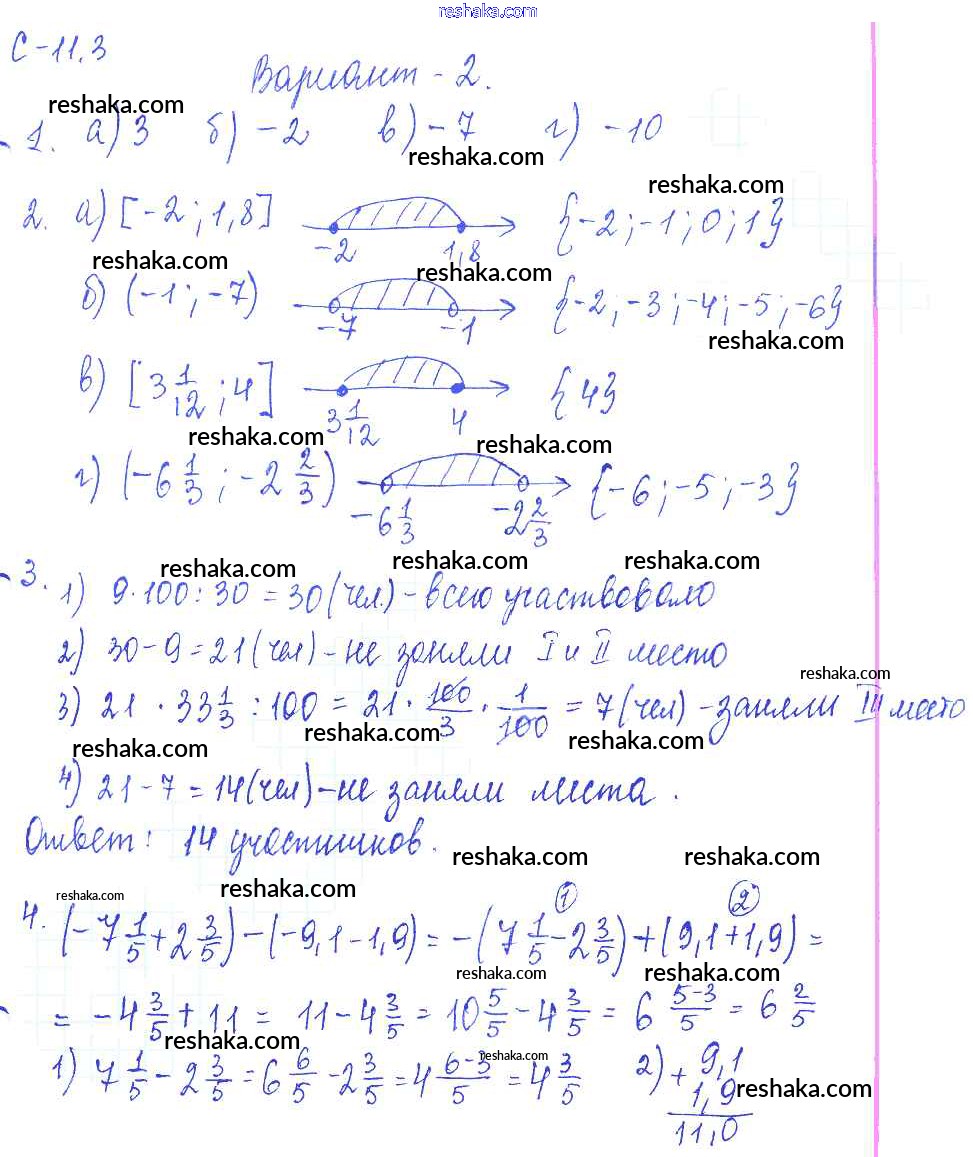 reshaka.com
С-11.3
Вариант - 2.
reshaka.com
1. а) 3 б) -2 в) -7 г) -10
reshaka.com
reshaka.com
2. а) [-2; 1,8] -2 1,8 {-2; -1; 0; 1}
reshaka.com reshaka.com reshaka.com
б) (-1; -7) -7 -1 {-2; -3; -4; -5; -6}
reshaka.com
в) [3 1/12; 4] 3 1/12 4 {4}
reshaka.com reshaka.com
г) (-6 1/3; -2 2/3) -6 1/3 -2 2/3 {-6; -5; -3}
reshaka.com reshaka.com reshaka.com
3. 1) 9·100:30 = 30 (чел) - всего участвовало
2) 30-9=21 (чел) - не заняли I и II место
reshaka.com
3) 21 · 33 1/3 : 100 = 21 · 100/3 · 1/100 = 7 (чел) - заняли III место
reshaka.com reshaka.com reshaka.com
4) 21-7 = 14 (чел) - не заняли места.
Ответ: 14 участников.
reshaka.com reshaka.com
reshaka.com reshaka.com
1 2
4. (-7 1/5 + 2 3/5) - (-9,1-1,9) = -(7 1/5 - 2 3/5) + (9,1+1,9) =
reshaka.com reshaka.com
= -4 3/5 + 11 = 11 - 4 3/5 = 10 5/5 - 4 3/5 = 6 5-3/5 = 6 2/5
reshaka.com reshaka.com
1) 7 1/5 - 2 3/5 = 6 6/5 - 2 3/5 = 4 6-3/5 = 4 3/5 2) + 9,1
1,9
reshaka.com
11,0